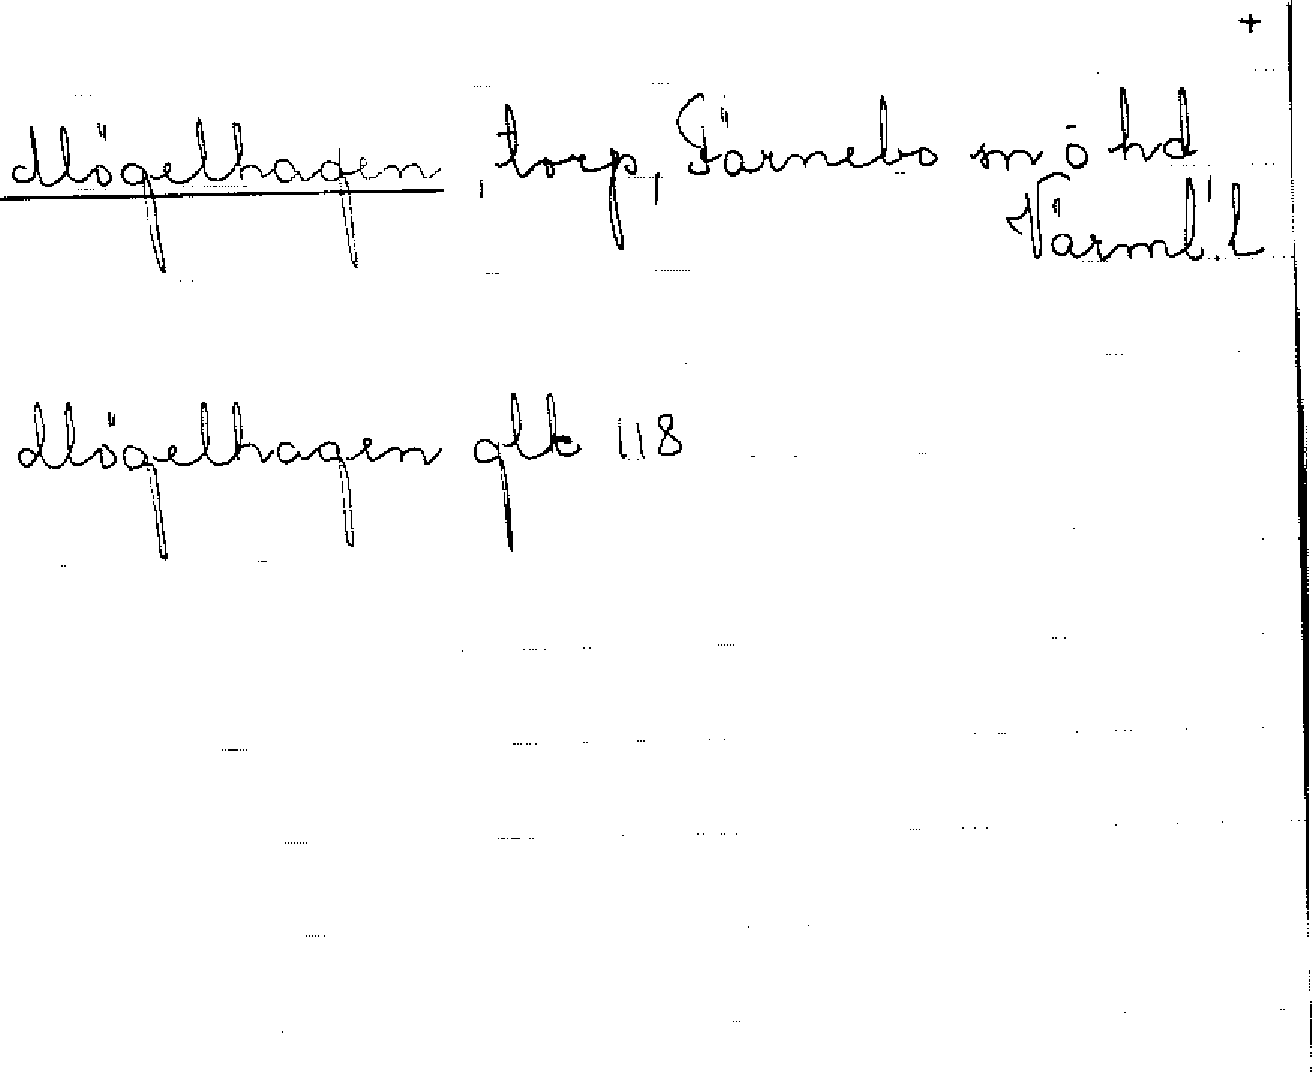 +
Mögelhagen, torp, Färnebo sn o hd,
Värml. l
Mögelhagen glk 118